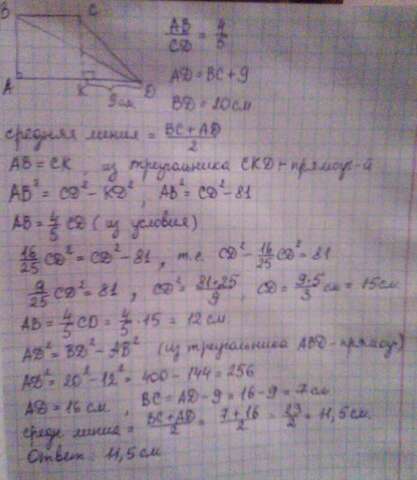 B C
A K D
9см
AB/CD = 4/5
AD = BC + 9
BD = 20см
средняя линия = (BC + AD)/2
AB = CK, из треугольника CKD - прямоуг-й
AB² = CD² - KD², AB² = CD² - 81
AB = 4/5 CD (из условия)
16/25 CD² = CD² - 81, т.е. CD² - 16/25 CD² = 81
9/25 CD² = 81, CD² = 81·25/9, CD = 9·5/3 см = 15см
AB = 4/5 CD = 4/5 · 15 = 12 см.
AD² = BD² - AB² (из треугольника ABD - прямоуг)
AD² = 20² - 12² = 400 - 144 = 256
AD = 16 см, BC = AD - 9 = 16 - 9 = 7 см
средн линия = (BC + AD)/2 = (7 + 16)/2 = 23/2 = 11,5см.
Ответ: 11,5 см